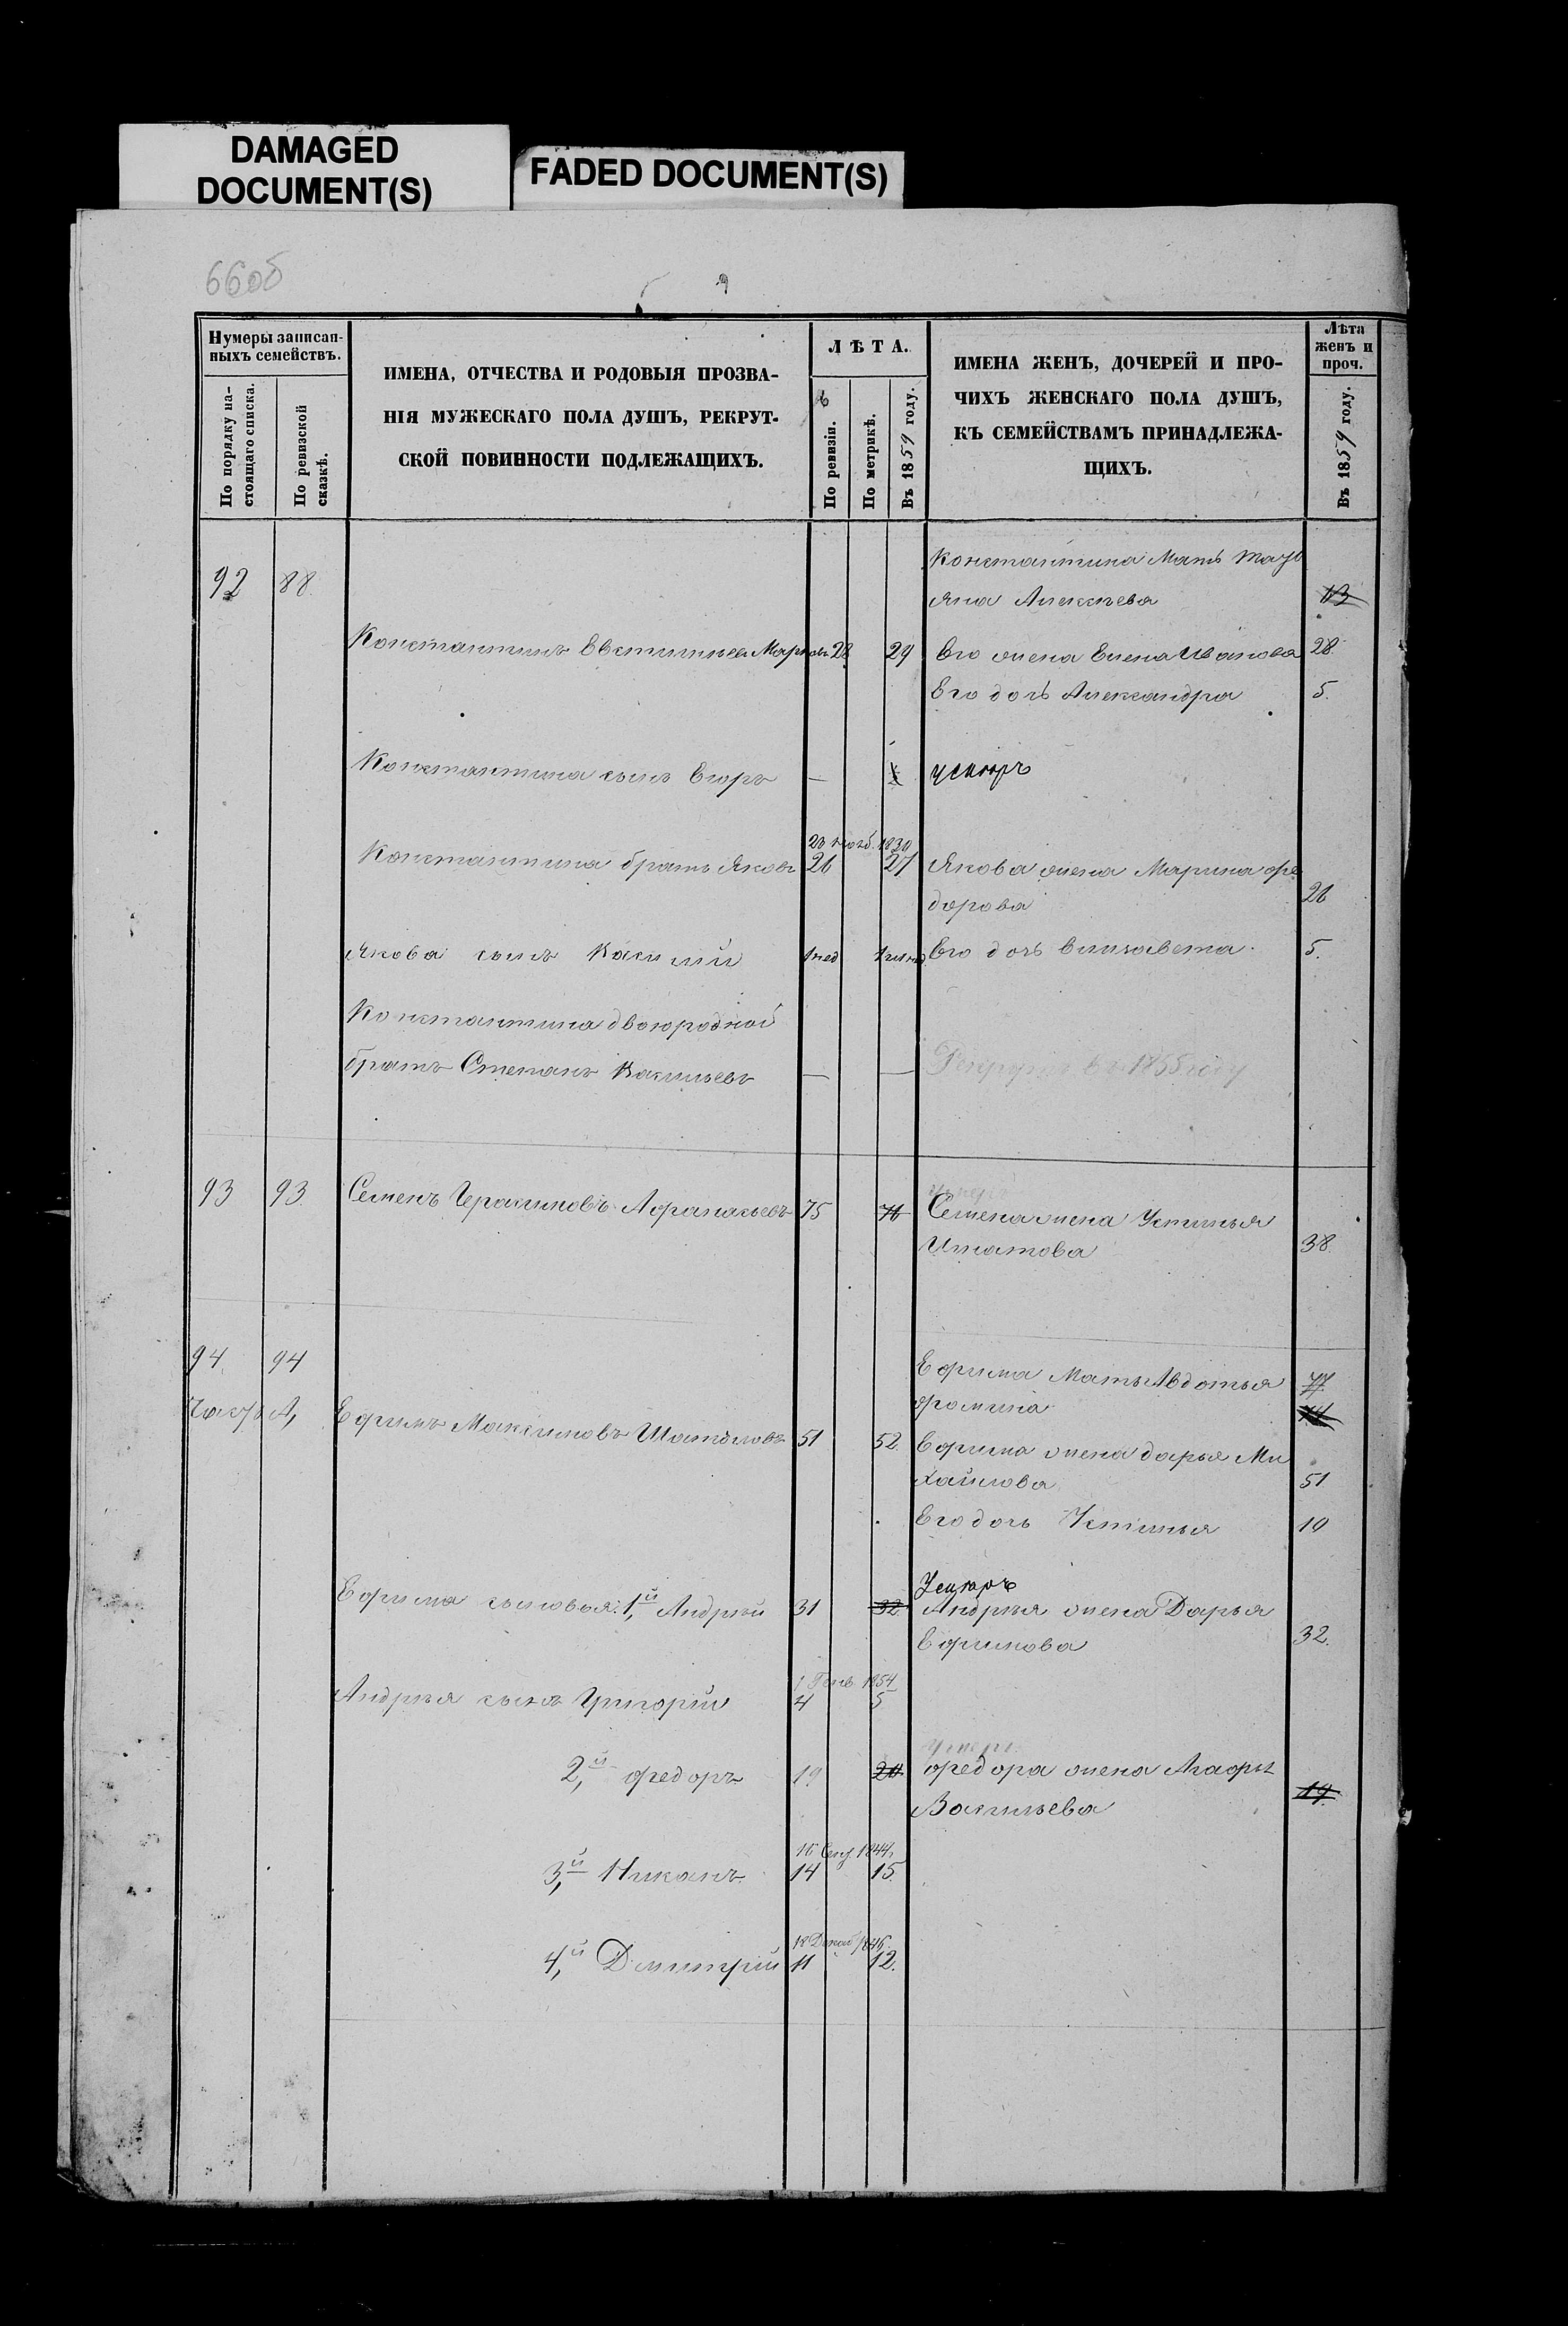 DAMAGED
DOCUMENT(S)
FADED DOCUMENT(S)
66об
Нумеры записан-
ныхъ семействъ.
По порядку на-
стоящаго списка.
По ревизской
сказкѣ.
ИМЕНА, ОТЧЕСТВА И РОДОВЫЯ ПРОЗВА-
НІЯ МУЖЕСКАГО ПОЛА ДУШЪ, РЕКРУТ-
СКОЙ ПОВИННОСТИ ПОДЛЕЖАЩИХЪ.
ЛѢТА.
По ревизіи.
По метрикѣ.
Въ 1859 году.
ИМЕНА ЖЕНЪ, ДОЧЕРЕЙ И ПРО-
ЧИХЪ ЖЕНСКАГО ПОЛА ДУШЪ,
КЪ СЕМЕЙСТВАМЪ ПРИНАДЛЕЖА-
ЩИХЪ.
Лѣта
женъ и
проч.
Въ 1859 году.
Константина Мать
92 88 Алексѣева
Константинъ 28 29 Его жена Елена Иванова 28
Его дочь Александра 5.
Константина сынъ Егоръ — умеръ
1830
Константина братъ Яковъ 26 27 Якова жена Марина Фе
дорова 26
Якова сынъ Василій 1 нед Его дочь Елизавета 5.
Константина двоюродной
братъ Степанъ Васильевъ — — въ 1855 году
умеръ
93 93 Семенъ Герасимовъ Афанасьевъ 75 76 Семена жена Устинья
Игнатова 38.
94 94 Ефима Мать Авдотья 77
Фомина
А, Ефимъ Максимовъ 51 52 Ефима жена Дарья Ми
хайлова 51
Его дочь Устинья 10
Умеръ
Ефима сыновья: 1,й Андрей 31 32 Андрея жена Дарья
Ефимова 32.
1 Генв. 1854
Андрея сынъ Григорій 4 5
умеръ
2,й Федоръ 19 20 Федора жена Агафья
Васильева 19.
16 Сен. 1844
3,й Никонъ 14 15.
18 Декаб 1846
4,й Дмитрій 11 12.